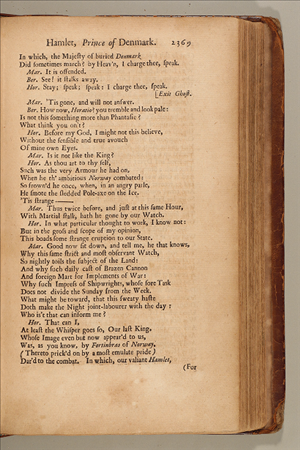 Hamlet, Prince of Denmark. 2369
In which, the Majesty of buried Denmark,
Did sometimes march? by Heav'n, I charge thee, speak.
Mar. It is offended.
Ber. See! it stalks away.
Hor. Stay; speak; speak: I charge thee, speak.
[Exit Ghost.
Mar. 'Tis gone, and will not answer.
Ber. How now, Horatio? you tremble and look pale:
Is not this something more than Phantasie?
What think you on't?
Hor. Before my God, I might not this believe,
Without the sensible and true avouch
Of mine own Eyes.
Mar. Is it not like the King?
Hor. As thou art to thy self,
Such was the very Armour he had on,
When he th' ambitious Norway combated:
So frown'd he once, when, in an angry parle,
He smote the sledded Pole-axe on the Ice.
'Tis strange
Mar. Thus twice before, and just at this same Hour,
With Martial stalk, hath he gone by our Watch.
Hor. In what particular thought to work, I know not:
But in the gross and scope of my opinion,
This boads some strange eruption to our State.
Mar. Good now sit down, and tell me, he that knows,
Why this same strict and most observant Watch,
So nightly toils the subject of the Land:
And why such daily cast of Brazen Cannon
And foreign Mart for Implements of War:
Why such Impress of Shipwrights, whose sore Task
Does not divide the Sunday from the Week.
What might be toward, that this sweaty haste
Doth make the Night joint-labourer with the day:
Who is't that can inform me?
Hor. That can I,
At least the Whisper goes so, Our last King,
Whose Image even but now appear'd to us,
Was, as you know, by Fortinbras of Norway,
(Thereto prick'd on by a most emulate pride)
Dar'd to the combat. In which, our valiant Hamlet,
(For